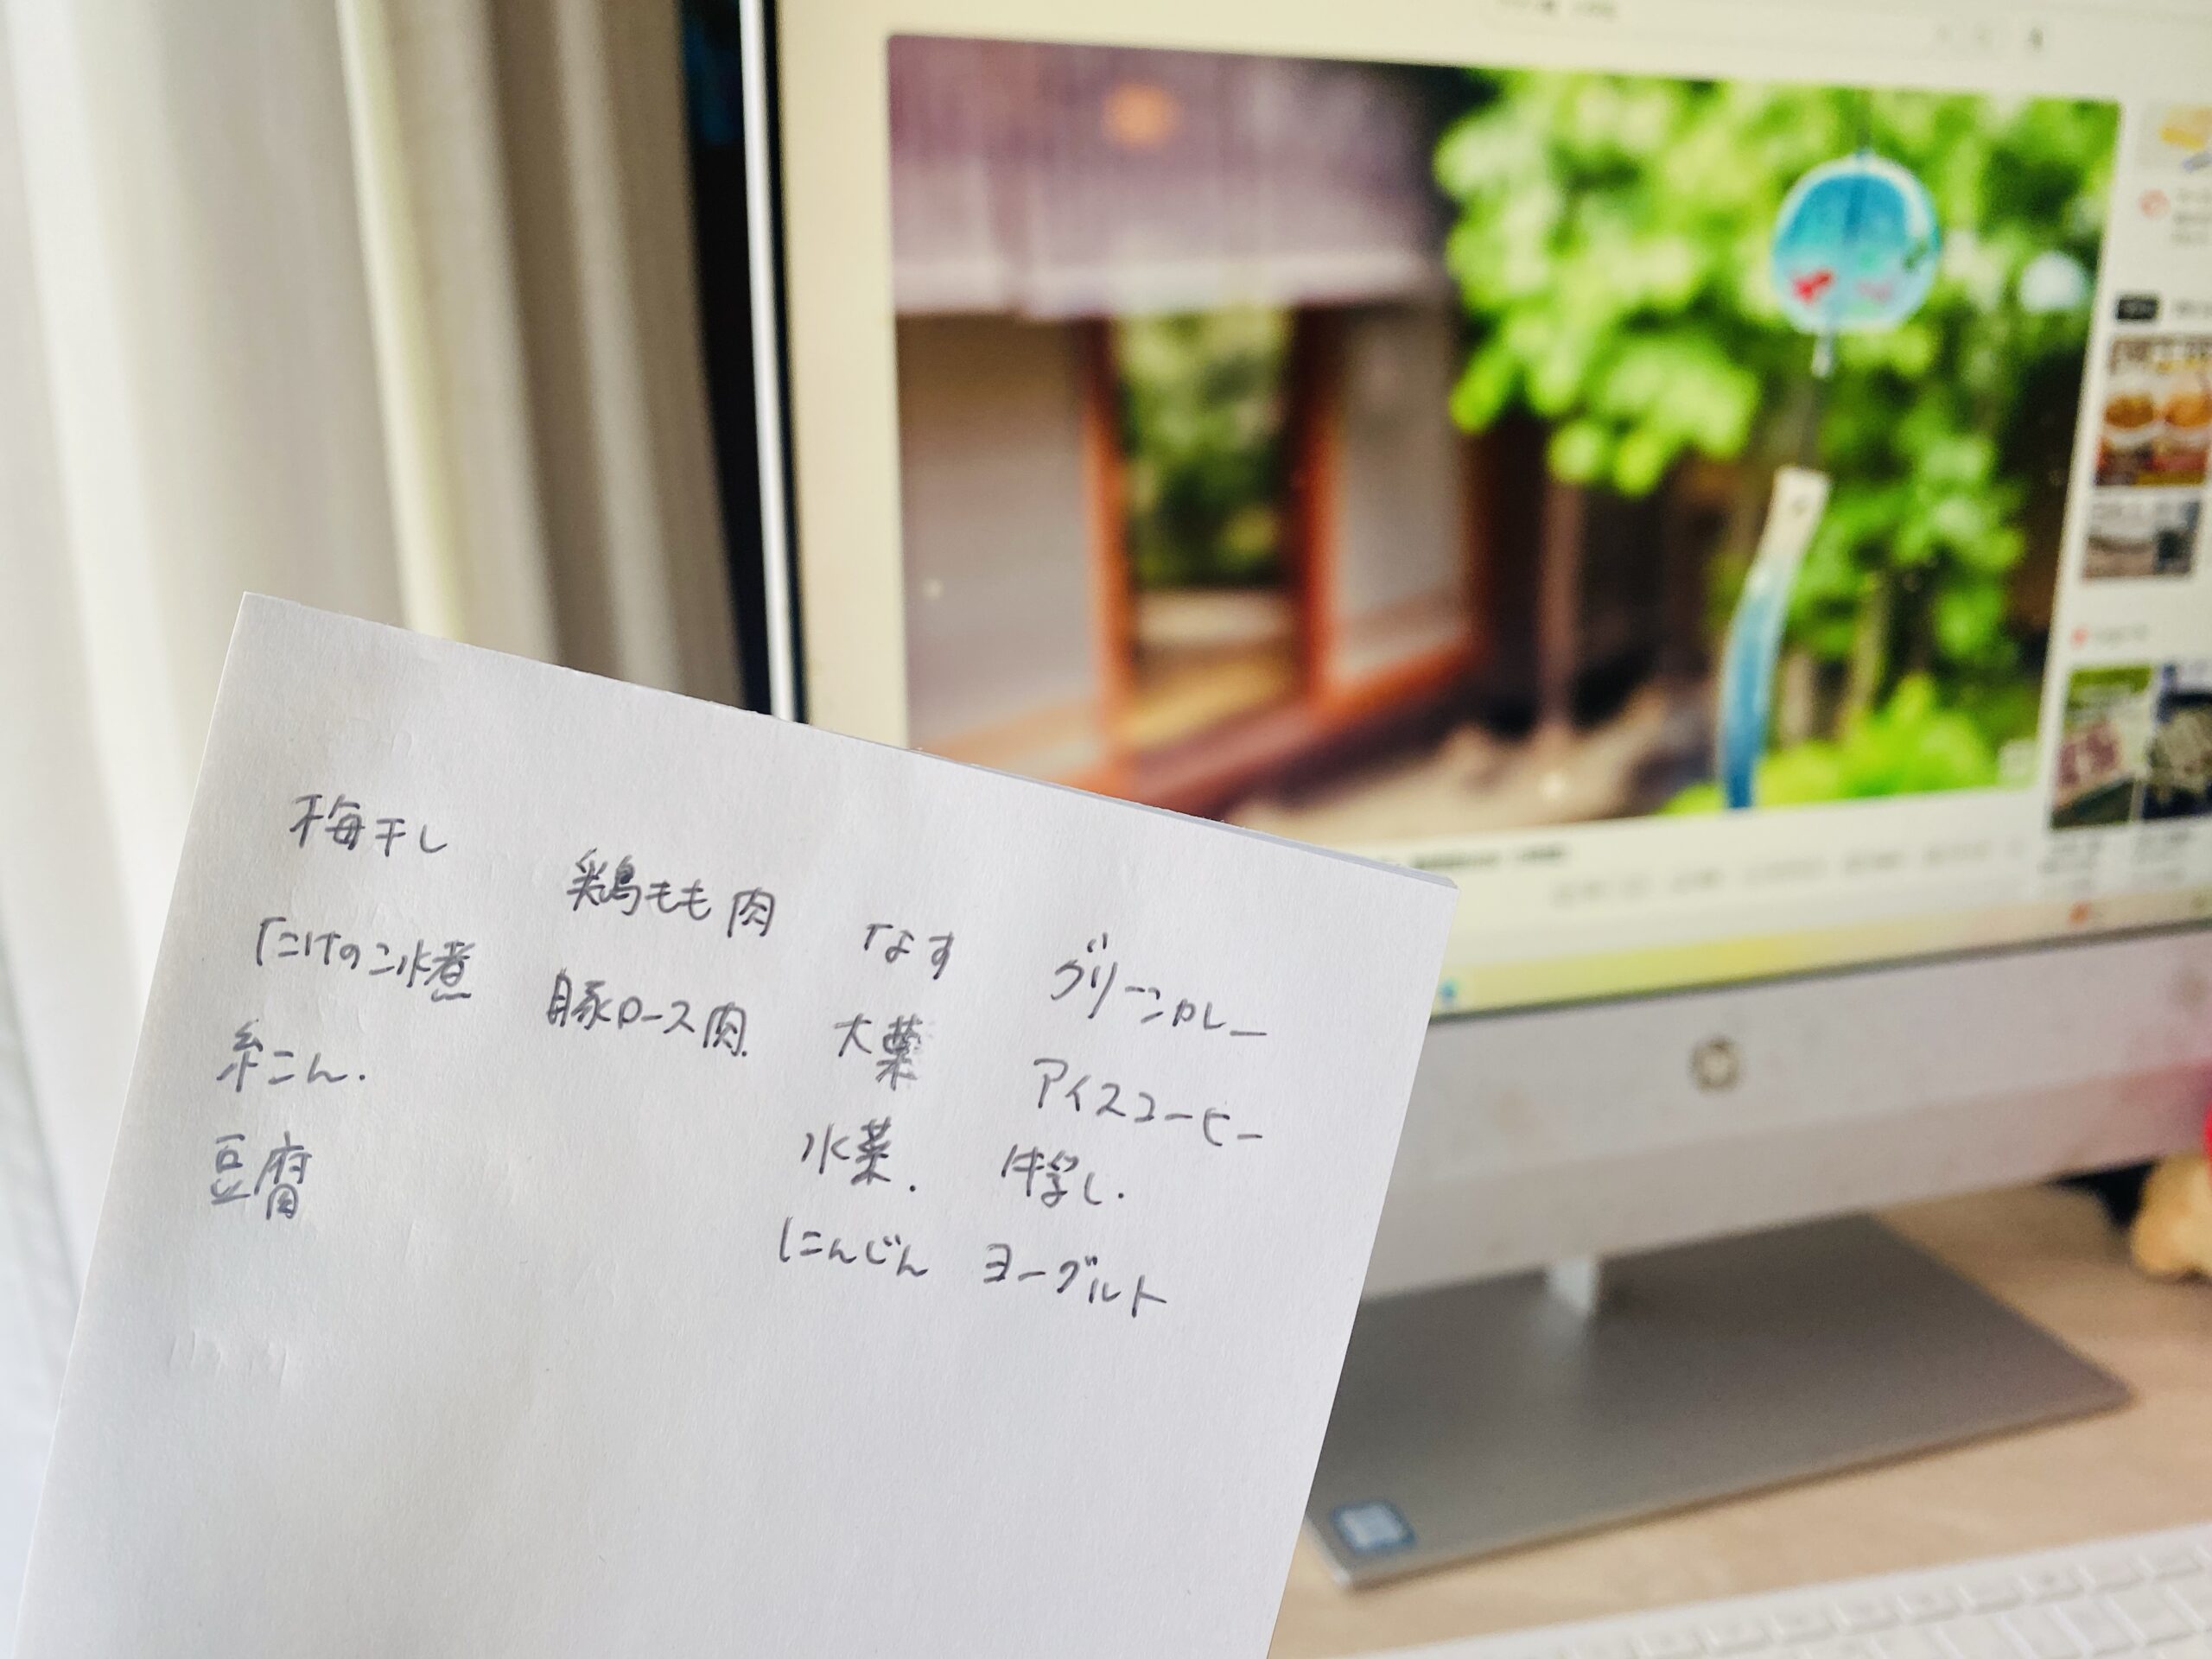 梅干し
たけのこ水煮
糸こん.
豆腐
鶏もも肉
豚ロース肉.
なす
大葉
水菜.
にんじん
グリーンカレー
アイスコーヒー
ヨーグルト